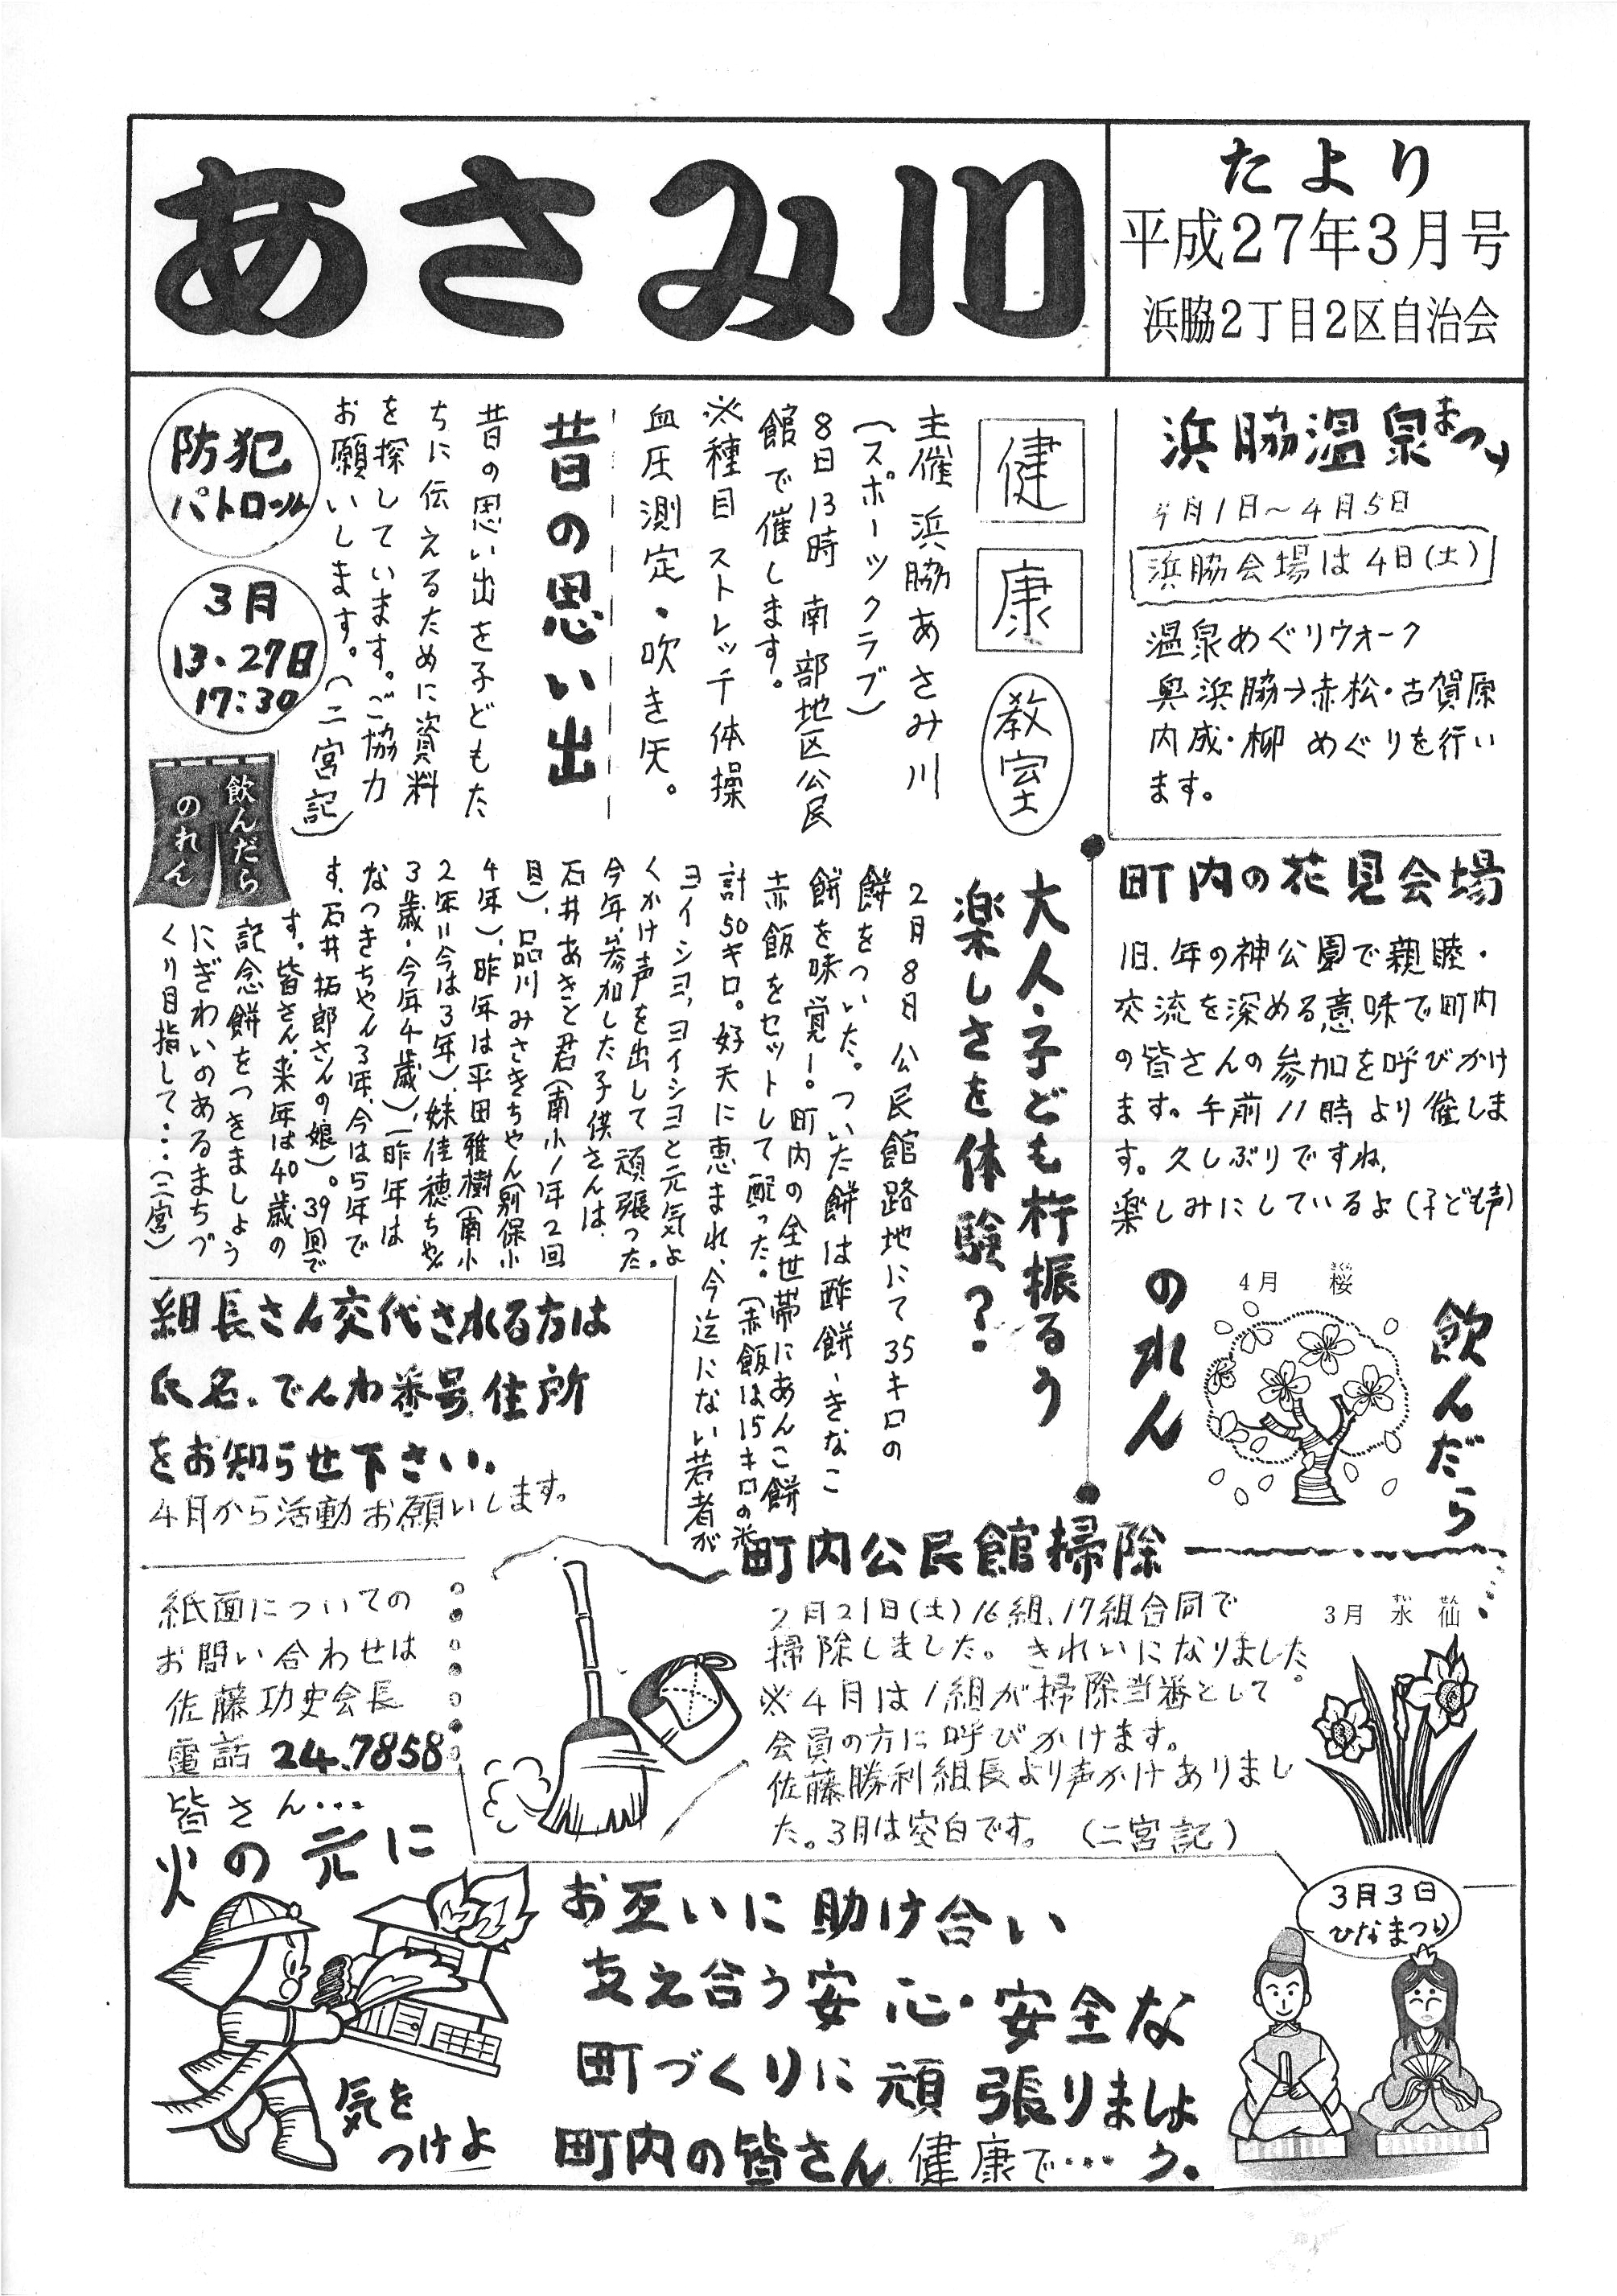 あさみ川
たより
平成27年3月号
浜脇2丁目2区自治会
浜脇温泉まつり
4月1日～4月5日
浜脇会場は4日(土)
温泉めぐりウォーク
奥浜脇→赤松・古賀原
内成・柳 めぐりを行い
ます。
健
康
教室
主催 浜脇あさみ川
(スポーツクラブ)
8日13時 南部地区公民
館で催します。
※種目 ストレッチ体操
血圧測定・吹き矢。
昔の思い出
昔の思い出を子どもた
ちに伝えるために資料
を探しています。ご協力
お願いします。(二宮記)
防犯
パトロール
3月
13・27日
17:30
飲んだら
のれん
町内の花見会場
旧、年の神公園で親睦・
交流を深める意味で町内
の皆さんの参加を呼びかけ
ます。午前11時より催しま
す。久しぶりですね、
楽しみにしているよ(子ども声)
大人・子ども杵振るう
楽しさを体験?
2月8日公民館路地にて35キロの
餅をついた。ついた餅は酢餅、きなこ
餅を味覚ー。町内の全世帯にあんこ餅
赤飯をセットして配った。(赤飯は15キロの米
計50キロ。好天に恵まれ、今迄にない若者が
ヨイショ、ヨイショと元気よ
くかけ声を出して頑張った。
今年、参加した子供さんは、
石井あきと君(南小1年2回
目)、品川みさきちゃん(別保小
4年)、昨年は平田雅樹(南小
2年=今は3年)、妹佳穂ちゃん
3歳・今年4歳)、一昨年は
なつきちゃん3年、今は5年で
す、石井拓郎さんの娘)。39回で
す。皆さん、来年は40歳の
記念餅をつきましょう
にぎわいのあるまちづ
くり目指して・・・(二宮)
飲んだら
のれん
4月 桜
さくら
組長さん交代される方は
氏名、でんわ番号、住所
をお知らせ下さい。
4月から活動お願いします。
町内公民館掃除
2月21日(土)16組、17組合同で
掃除しました。きれいになりました。
※4月は1組が掃除当番として
会員の方に呼びかけます。
佐藤勝利組長より声かけありまし
た。3月は空白です。(二宮記)
3月 水仙
すいせん
紙面についての
お問い合わせは
佐藤功史会長
電話 24.7858
皆さん・・・
火の元に
気を
つけよ
お互いに助け合い
支え合う安心・安全な
町づくりに頑張りましょ
う。
町内の皆さん、健康で・・・
3月3日
ひなまつり